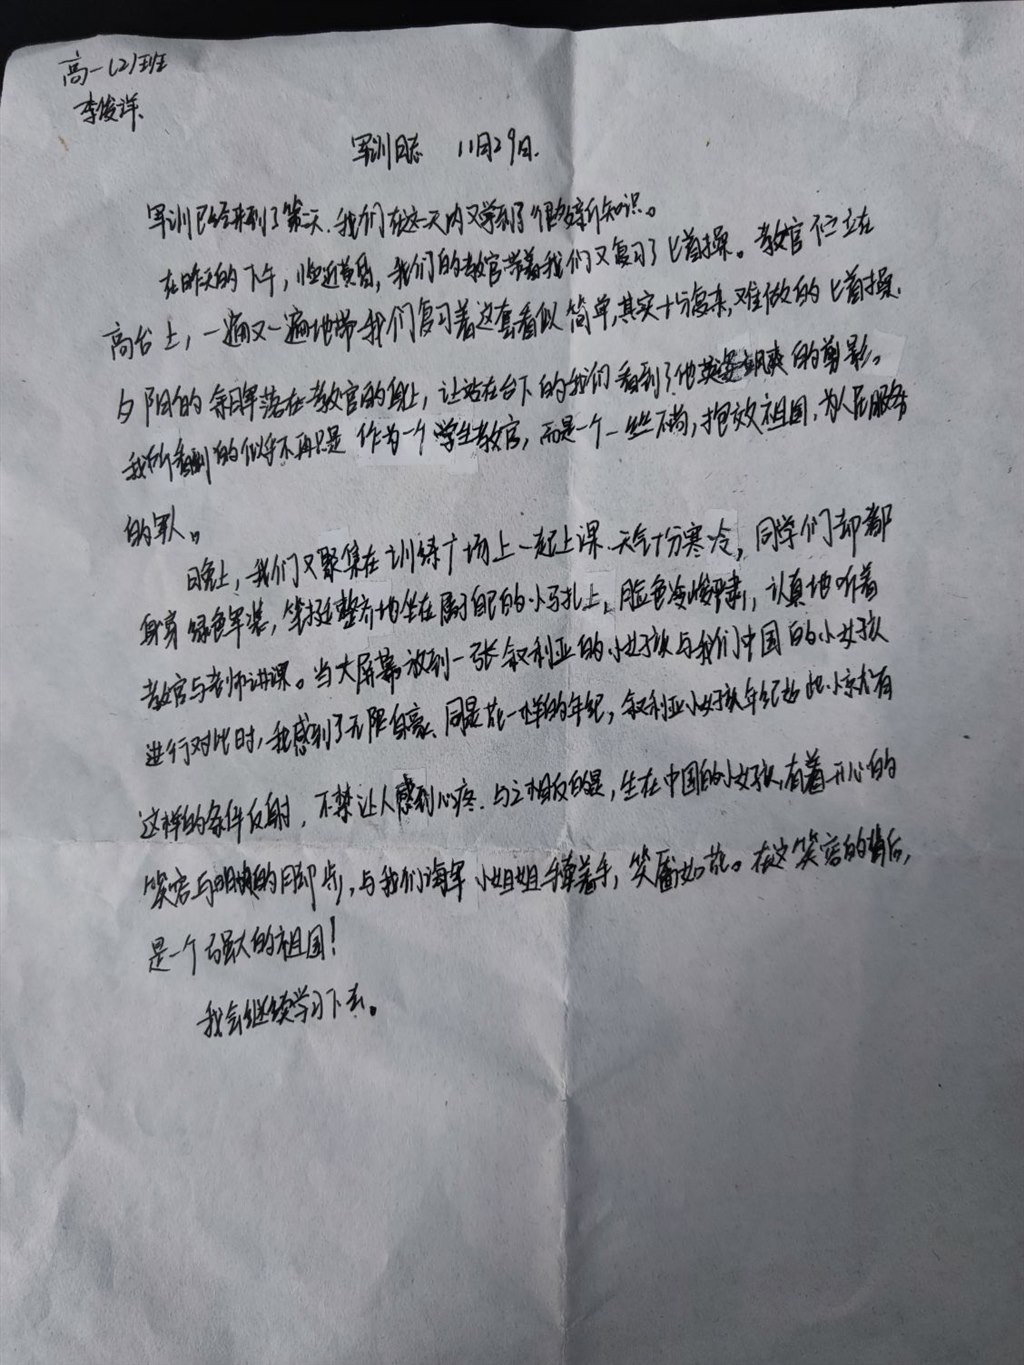 高一(2)班
李俊洋
军训日志 11月29日.
军训已经来到了第二天.我们在这一天内又学到了很多新知识。
在昨天的下午，临近黄昏，我们的教官带着我们又复习了匕首操。教官伫立在
高台上，一遍又一遍地带我们复习着这套看似简单,其实十分复杂,难做的匕首操.
夕阳的余晖落在教官的身上，让站在台下的我们看到了他英姿飒爽的剪影。
我所看到的似乎不再只是作为一个学生教官，而是一个一丝不苟，报效祖国，为人民服务
的军人。
晚上，我们又聚集在训练广场上一起上课.天气十分寒冷，同学们却都
身穿绿色军装，笔挺整齐地坐在属于自己的小马扎上，脸色冷峻严肃，认真地听着
教官与老师讲课。当大屏幕放到一张叙利亚的小女孩与我们中国的小女孩
进行对比时，我感到了无限自豪、同是花一样的年纪，叙利亚小女孩年纪如此小就有
这样的条件反射，不禁让人感到心疼.与之相反的是，生在中国的小女孩,有着开心的
笑容与明快的脚步，与我们海军小姐姐手牵着手，笑靥如花。在这笑容的背后，
是一个强大的祖国！
我会继续学习下去。